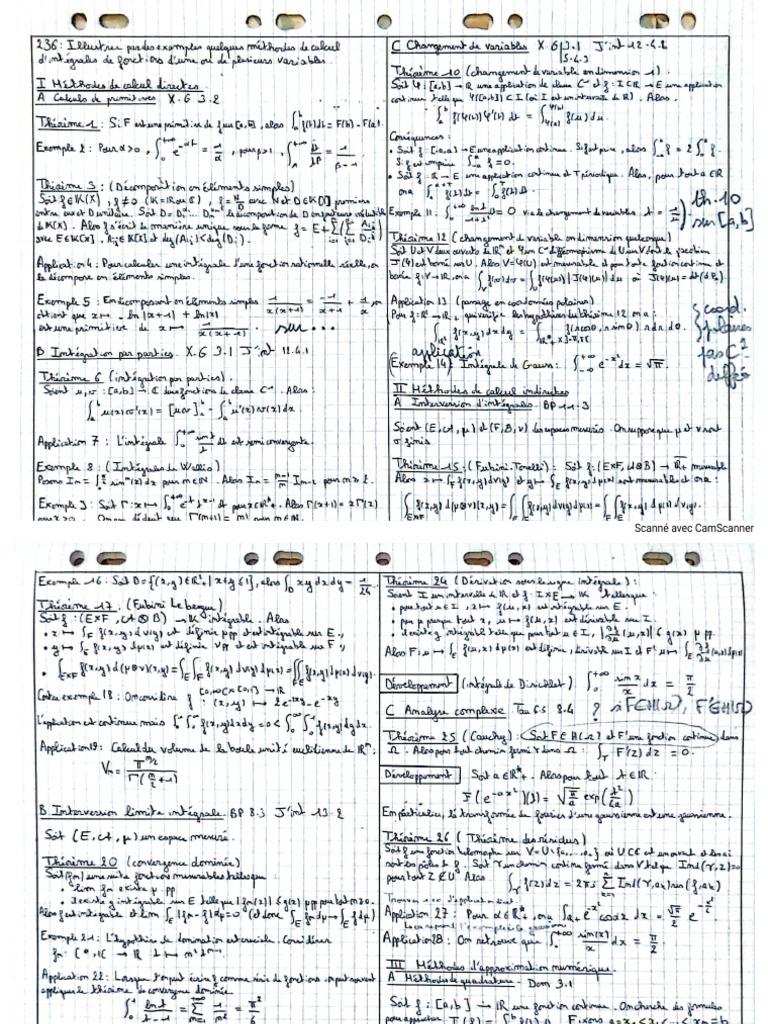 236: Illustrer par des exemples quelques méthodes de calcul
d'intégrales de fonctions d'une ou de plusieurs variables.
I Méthodes de calcul directes.
A Calculs de primitives X.G 3.2
Théorème 1: Si F est une primitive de f sur [a,b], alors ∫_a^b f(t)dt = F(b)-F(a).
Exemple 2: Pour α>0, ∫_0^{+∞} e^{-αt} = 1/α, pour β>1,
Théorème 3: (Décomposition en éléments simples)
Soit f∈K(X), f≠0 (K=R ou C), f=N/D avec N et D∈K[X] premiers
entre eux et D unitaire. Soit la décomposition de D en
de K[X]. Alors f s'écrit de manière unique sous la forme
avec E∈K[x], A_{ij}∈K[x] et deg(A_{ij})<deg(D_i).
Application 4: Pour calculer une intégrale d'une fonction rationnelle réelle, on
la décompose en éléments simples.
Exemple 5: En décomposant en éléments simples 1/(x(x+1)) = -1/(x+1) + 1/x, on
obtient que x ↦ -ln|x+1| + ln|x|
est une primitive de x ↦ 1/(x(x+1)). sur ...
B Intégration par parties. X.G 3.1 J'int 12.4.1
Théorème 6 (intégration par parties).
Soient u,v: [a,b] → C deux fonctions de classe C^1. Alors:
∫_a^b u(x)v'(x) = [uv]_a^b - ∫_a^b u'(x)v(x)dx.
Application 7: L'intégrale ∫_0^{+∞} sin t/t dt est semi convergente.
Exemple 8: (Intégrales de Wallis)
Posons I_n = ∫_0^{π/2} sin^n(x)dx pour n∈N. Alors I_n = (n-1)/n I_{n-2} pour n≥2.
Exemple 9: Soit Γ: x ↦ ∫_0^{+∞} e^{-t} t^{x-1} dt pour x∈R^{*+}. Alors Γ(x+1) = xΓ(x)
pour x>0. On en déduit que Γ(n+1) = n! pour n∈N.
C Changement de variables X.G 3.1 J'int 12.4.2
5.4.3
Théorème 10 (changement de variable en dimension 1).
Soit φ: [a,b] → R une application de classe C^1 et f: I⊂R → E une application
continue telle que φ([a,b]) ⊂ I (où I est un intervalle de R). Alors.
∫_a^b f(φ(t))φ'(t)dt = ∫_{φ(a)}^{φ(b)} f(u)du
Conséquences:
• Soit f: [-a,a] → E une application continue. Si f est paire, alors ∫_{-a}^a f = 2∫_0^a f
Si f est impaire ∫_{-a}^a f = 0.
• Soit f: R → E une application continue et T périodique. Alors, pour tout a∈R
on a ∫_a^{a+T} f(t)dt = ∫_0^T f(t)dt.
th. 10
sur [a,b]
Exemple 11: = 0 via le changement de variables t =
Théorème 12 (changement de variable en dimension quelconque)
Soit U et V deux ouverts de R^n et φ un C^1-difféomorphisme de U sur V dont le jacobien
J(φ) est borné sur U. Alors V=φ(U) est mesurable et pour toute fonction continue et
bornée f: V → R, on a ∫_V f(v)dv = ∫_U f(φ(u))|J(φ)(u)|du où
Application 13 (passage en coordonnées polaires)
Pour f: R² → R qui vérifie les hypothèses du théorème 12 on a:
∫_{R²} f(x,y)dxdy = f(r cosθ, r sinθ) r dr dθ.
coord.
polaires
pas C^1
difféo
application
(Exemple 14) Intégrale de Gauss: ∫_{-∞}^{+∞} e^{-x²}dx = √π.
II Méthodes de calcul indirectes
A Interversion d'intégrales BP 1.1.3
Soient (E,A,μ) et (F,B,ν) des espaces mesurés. On suppose que μ et ν sont
σ finis
Théorème 15: (Fubini-Tonelli): Soit f: (E×F, A⊗B) → R̄+ mesurable
Alors x ↦ ∫_F f(x,y)dν(y) et y ↦ ∫_E f(x,y)dμ(x) sont mesurable et on a:
∫_{E×F} f(x,y)d(μ⊗ν)(x,y) = ∫_E∫_F f(x,y)dν(y)dμ(x) = ∫_F∫_E f(x,y)dμ(x)dν(y).
Scanné avec CamScanner
Exemple 16: Soit D={(x,y)∈R²+ | x+y≤1}, alors ∫_D xy dx dy = 1/24
Théorème 17: (Fubini Lebesgue)
Soit f: (E×F, A⊗B) → K intégrable. Alors
• x ↦ ∫_F f(x,y)dν(y) est définie μpp et est intégrable sur E.
• y ↦ ∫_E f(x,y)dμ(x) est définie νpp et est intégrable sur F.
• ∫_{E×F} f(x,y)d(μ⊗ν)(x,y) = ∫_E∫_F f(x,y)dν(y)dμ(x) = ∫_F∫_E f(x,y)dμ(x)dν(y).
Contre exemple 18: On considère f: [0,∞[×[0,1] → R
(x,y) ↦ 2e^{-2xy} - e^{-xy}
L'application est continue mais ∫_0^1∫_0^∞ f(x,y)dxdy = 0 < ∫_0^∞∫_0^1 f(x,y)dydx.
Application 19: Calcul du volume de la boule unité euclidienne de R^n:
V_n = π^{n/2}/Γ(n/2+1)
B Interversion limite intégrale. BP 8.3 J'int 13.2
Soit (E,A,μ) un espace mesuré.
Théorème 20 (convergence dominée)
Soit (f_n) une suite fonctions mesurables telle que:
• lim f_n existe μ pp
• il existe g intégrable sur E telle que |f_n(x)| ≤ g(x) μpp pour tout n≥0.
Alors f est intégrable et lim ∫_E |f_n-f|dμ = 0 (et donc ∫_E f_n dμ → ∫_E f dμ)
Exemple 21: L'hypothèse de domination est cruciale. Considérer
f_n: [0,1[ → R t ↦ n²t^{n-1}
Application 22: Lorsque l'on peut écrire f comme série de fonctions, on peut souvent
appliquer le théorème de convergence dominée
∫_0^1 ln t/(t-1) dt = Σ_{n=1}^{+∞} 1/n² = π²/6
Théorème 24 (Dérivation sous le signe intégrale):
Soient I un intervalle de R et f: I×E → K telle que:
• pour tout u∈I, x ↦ f(u,x) est intégrable sur E.
• pour μ presque tout x, u ↦ f(u,x) est dérivable sur I.
• il existe g intégrable telle que pour tout u∈I, |∂f/∂u(u,x)| ≤ g(x) μ pp.
Alors F: u ↦ ∫_E f(u,x)dμ(x) est définie, dérivable sur I et F': u ↦ ∫_E ∂f/∂u(u,x)dμ(x)
Développement (intégrale de Dirichlet) ∫_0^{+∞} sin x/x dx = π/2
C Analyse complexe Tau 6.5 8.4 ? si F∈H(Ω), F'∈H(Ω)
Théorème 25: (Cauchy): Soit F∈H(Ω) et F' une fonction continue dans
Ω. Alors pour tout chemin fermé γ dans Ω: ∫_γ F'(z)dz = 0.
Développement Soit a∈R^{*+}. Alors pour tout t∈R:
F(e^{-ax²})(t) = √(π/a) exp(
En particulier, la transformée de fourier d'une gaussienne est une gaussienne.
Théorème 26 (Théorème des résidus)
Soit f une fonction holomorphe sur V=U\{a_1,...,a_n} où U⊂C est un ouvert et les a_i
sont les pôles de f. Soit γ un chemin continu fermé dans V tel que Ind(γ,z)=0
pour tout z∉U Alors ∫_γ f(z)dz = 2πi Σ Ind(γ,a_k)res(f,a_k)
Trouver 1000 d'application!
Application 27: Pour α∈R^{*+}, on a
Application 28: On retrouve que ∫_0^{+∞} sin(x)/x dx = π/2.
III Méthodes d'approximation numérique.
A Méthodes de quadrature. Dem 3.1
Soit f: [a,b] → R une fonction continue. On cherche des formules
pour approcher I(f) = ∫ Fixons